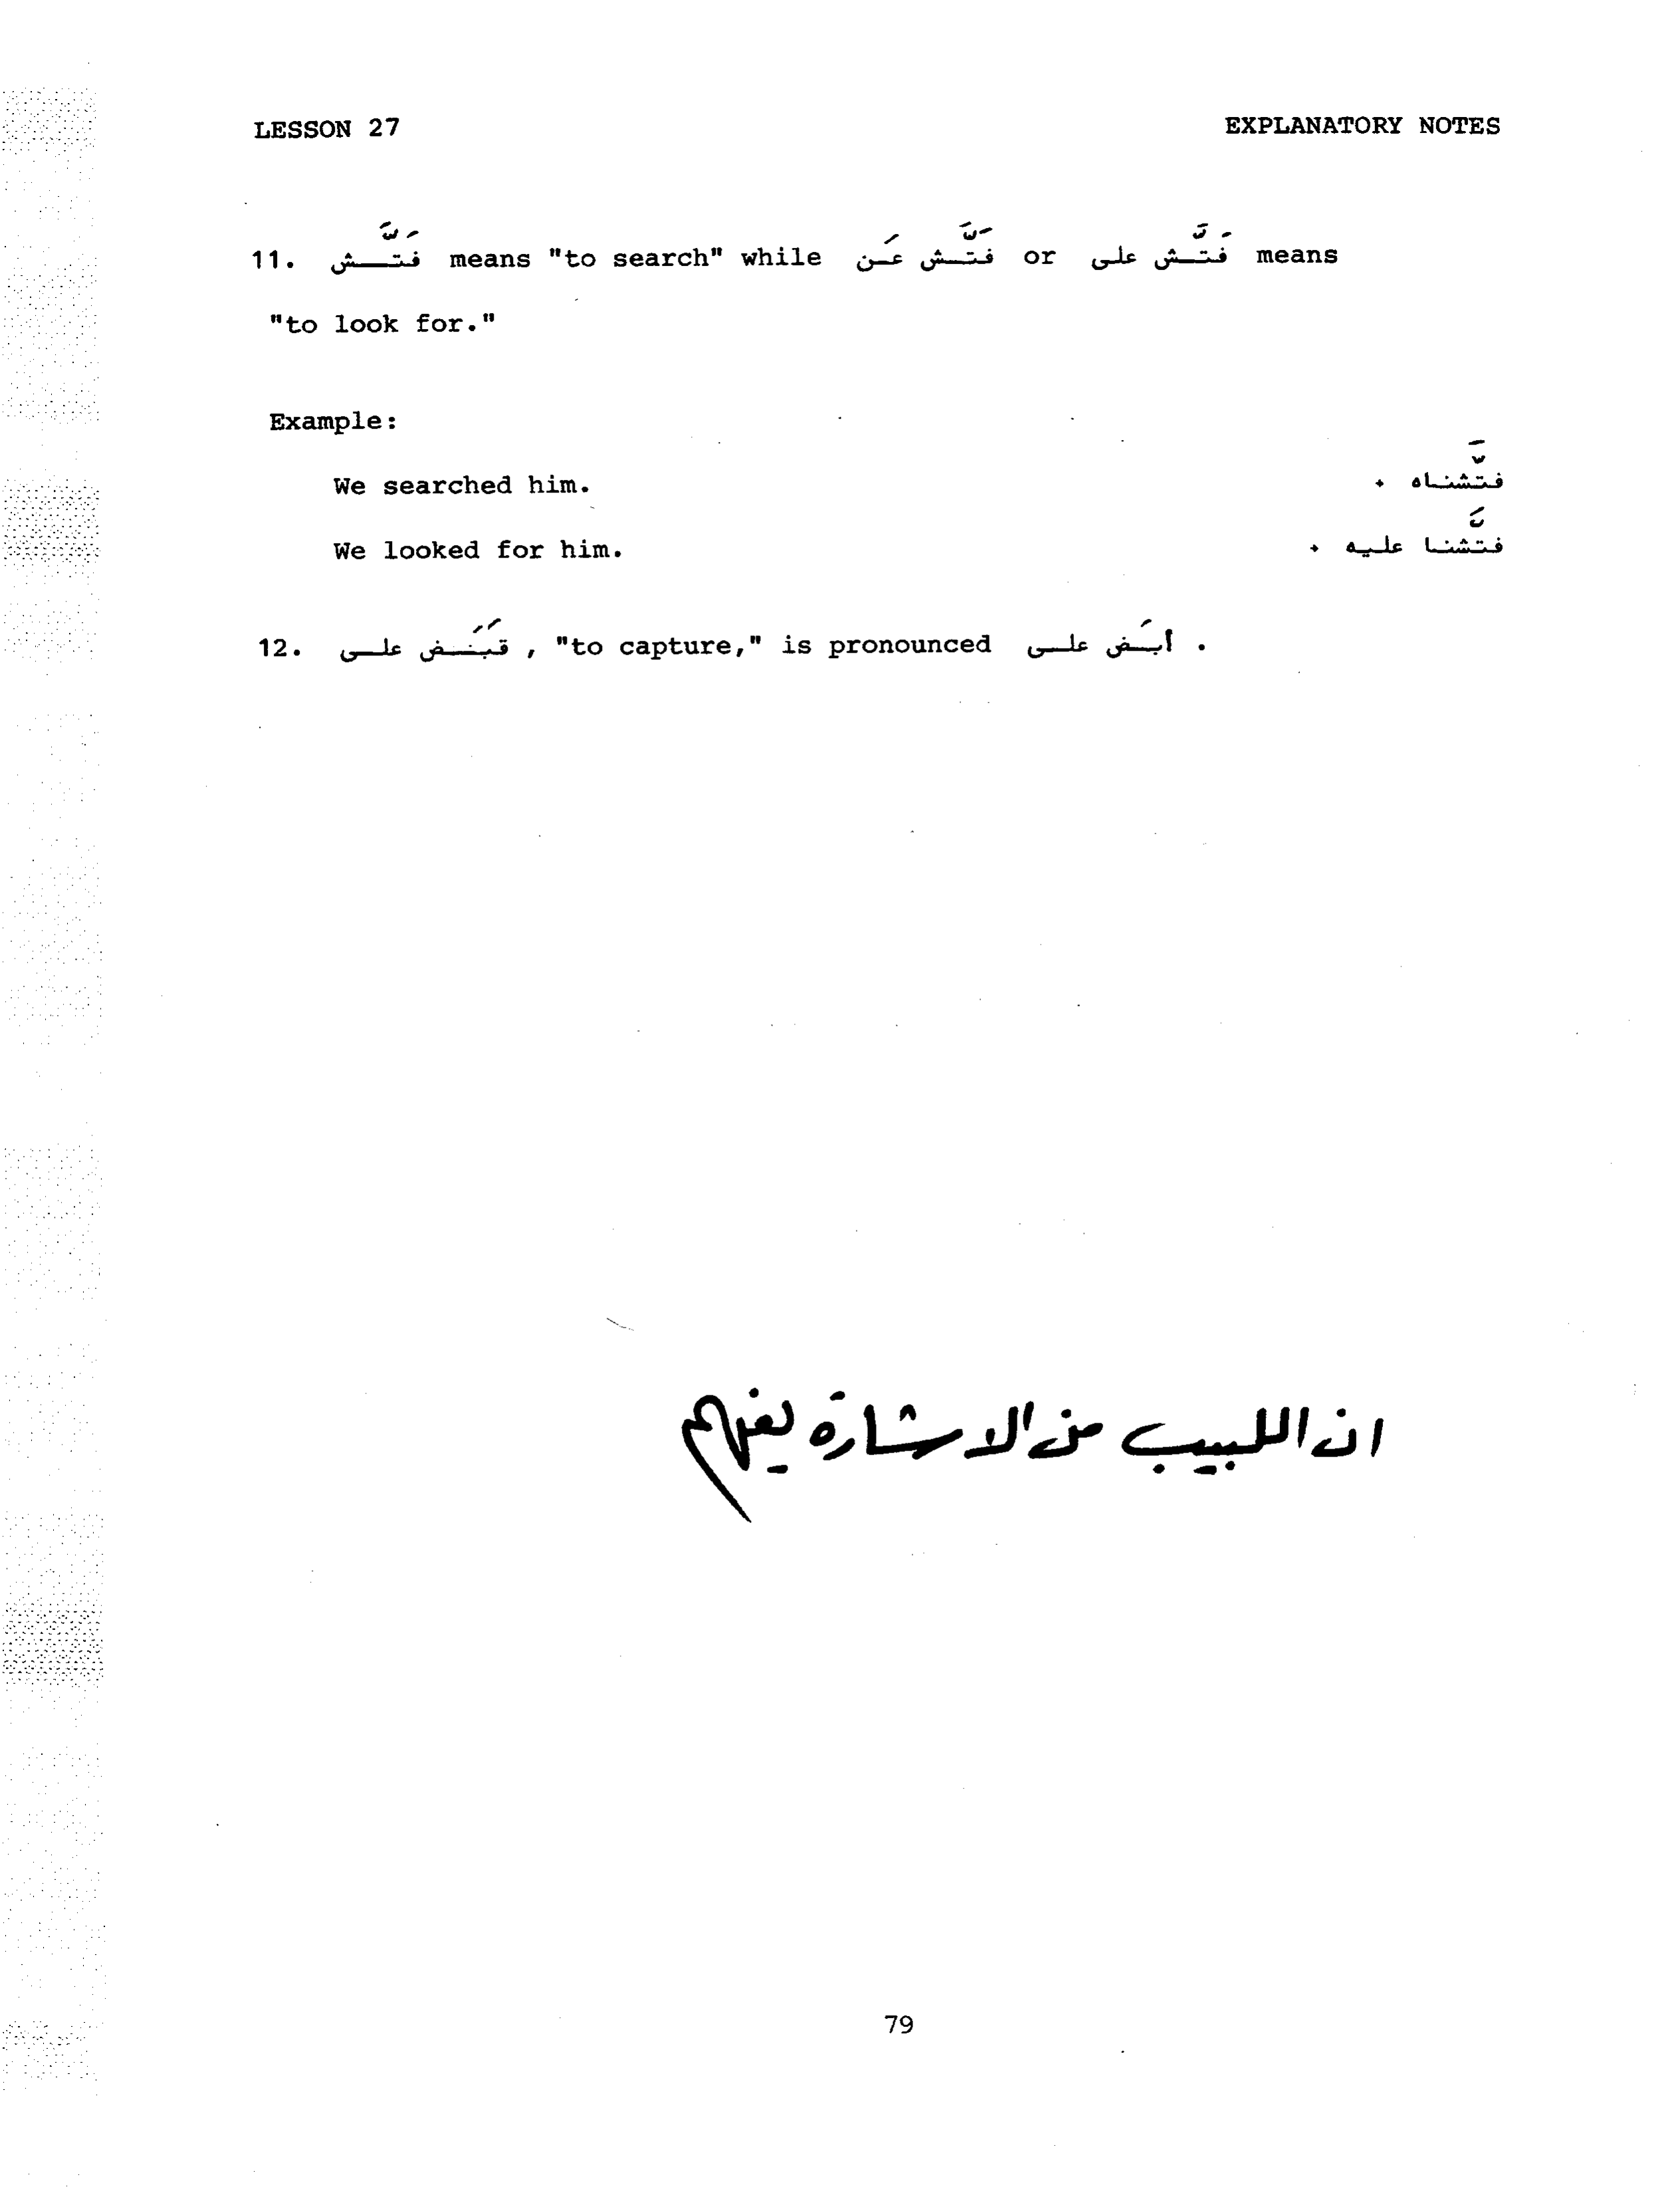 LESSON 27 EXPLANATORY NOTES
11. فَتَّش means "to search" while فَتَّش عَن or فَتَّش على means
"to look for."
Example:
We searched him. فتَّشناه .
We looked for him. فتَّشنا عليه .
12. قَبَض على , "to capture," is pronounced أبَض على .
ان اللبيب من الاشارة يفهم
79